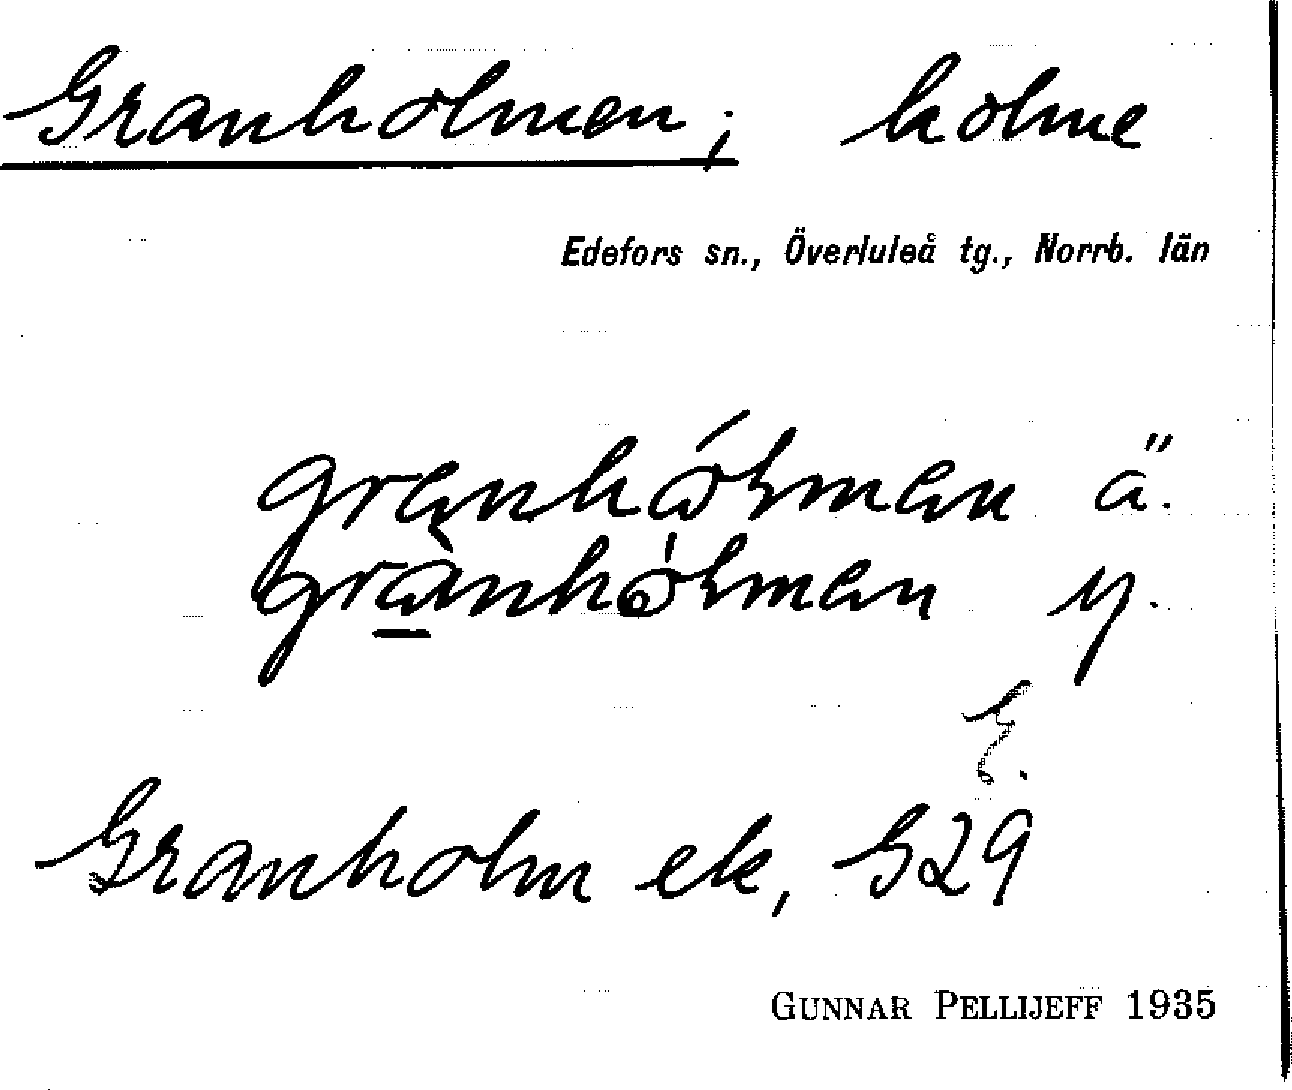 Granholmen; holme
Edefors sn., Överluleå tg., Norrb. län
granhólman ä.
grànhólman y.
G.
Granholm ek, G29
GUNNAR PELLIJEFF 1935